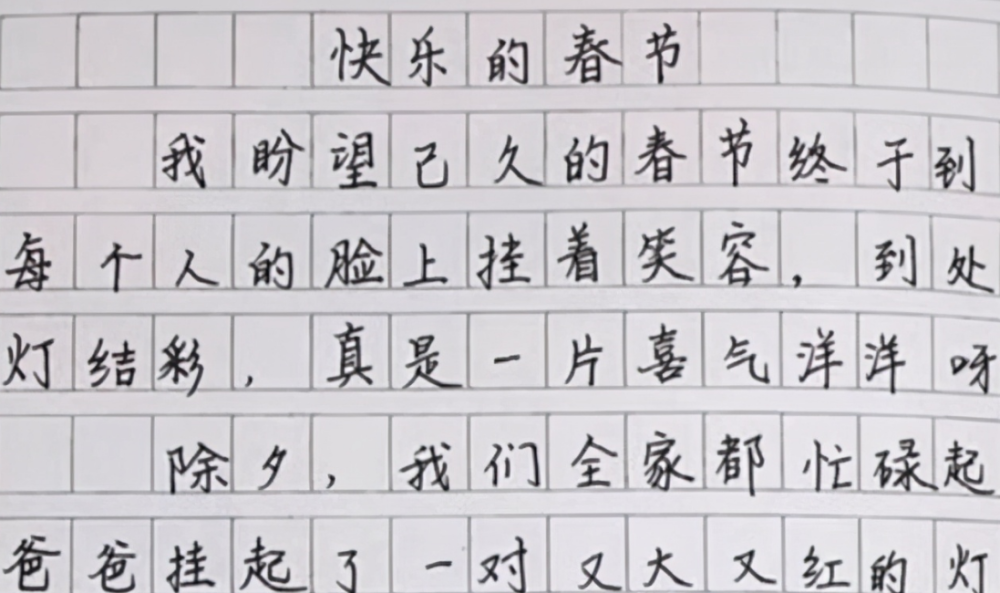 快乐的春节
我盼望已久的春节终于到
每个人的脸上挂着笑容，到处
灯结彩，真是一片喜气洋洋呀
除夕，我们全家都忙碌起
爸爸挂起了一对又大又红的灯